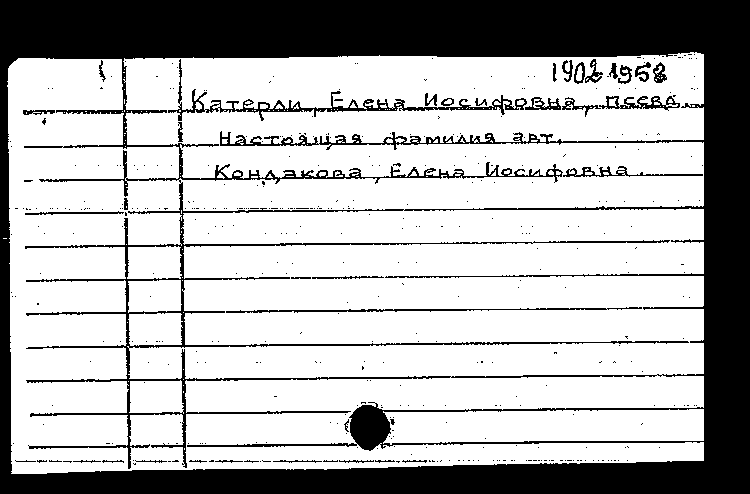 1902-1958
Катерли, Елена Иосифовна, псевд.
Настоящая фамилия авт.
Кондакова, Елена Иосифовна.